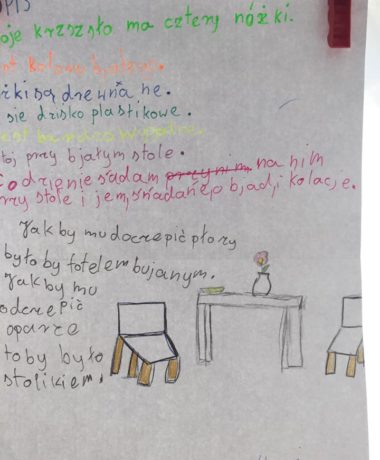 OPIS
oje krzszsło ma cztery nóżki.
żki są drewniane.
sie dzisko plastikowe.
est bardzo wygodne.
toj przy bjałym stole.
co dzienie siadam przynim na nim
rzy stole i jem, śniadanie, objad, i kolacje.
Jak by mu doczepić płozy
było by fotelem bujanym.
Jak by mu
odczepić
oparce
to by było
stolikiem.